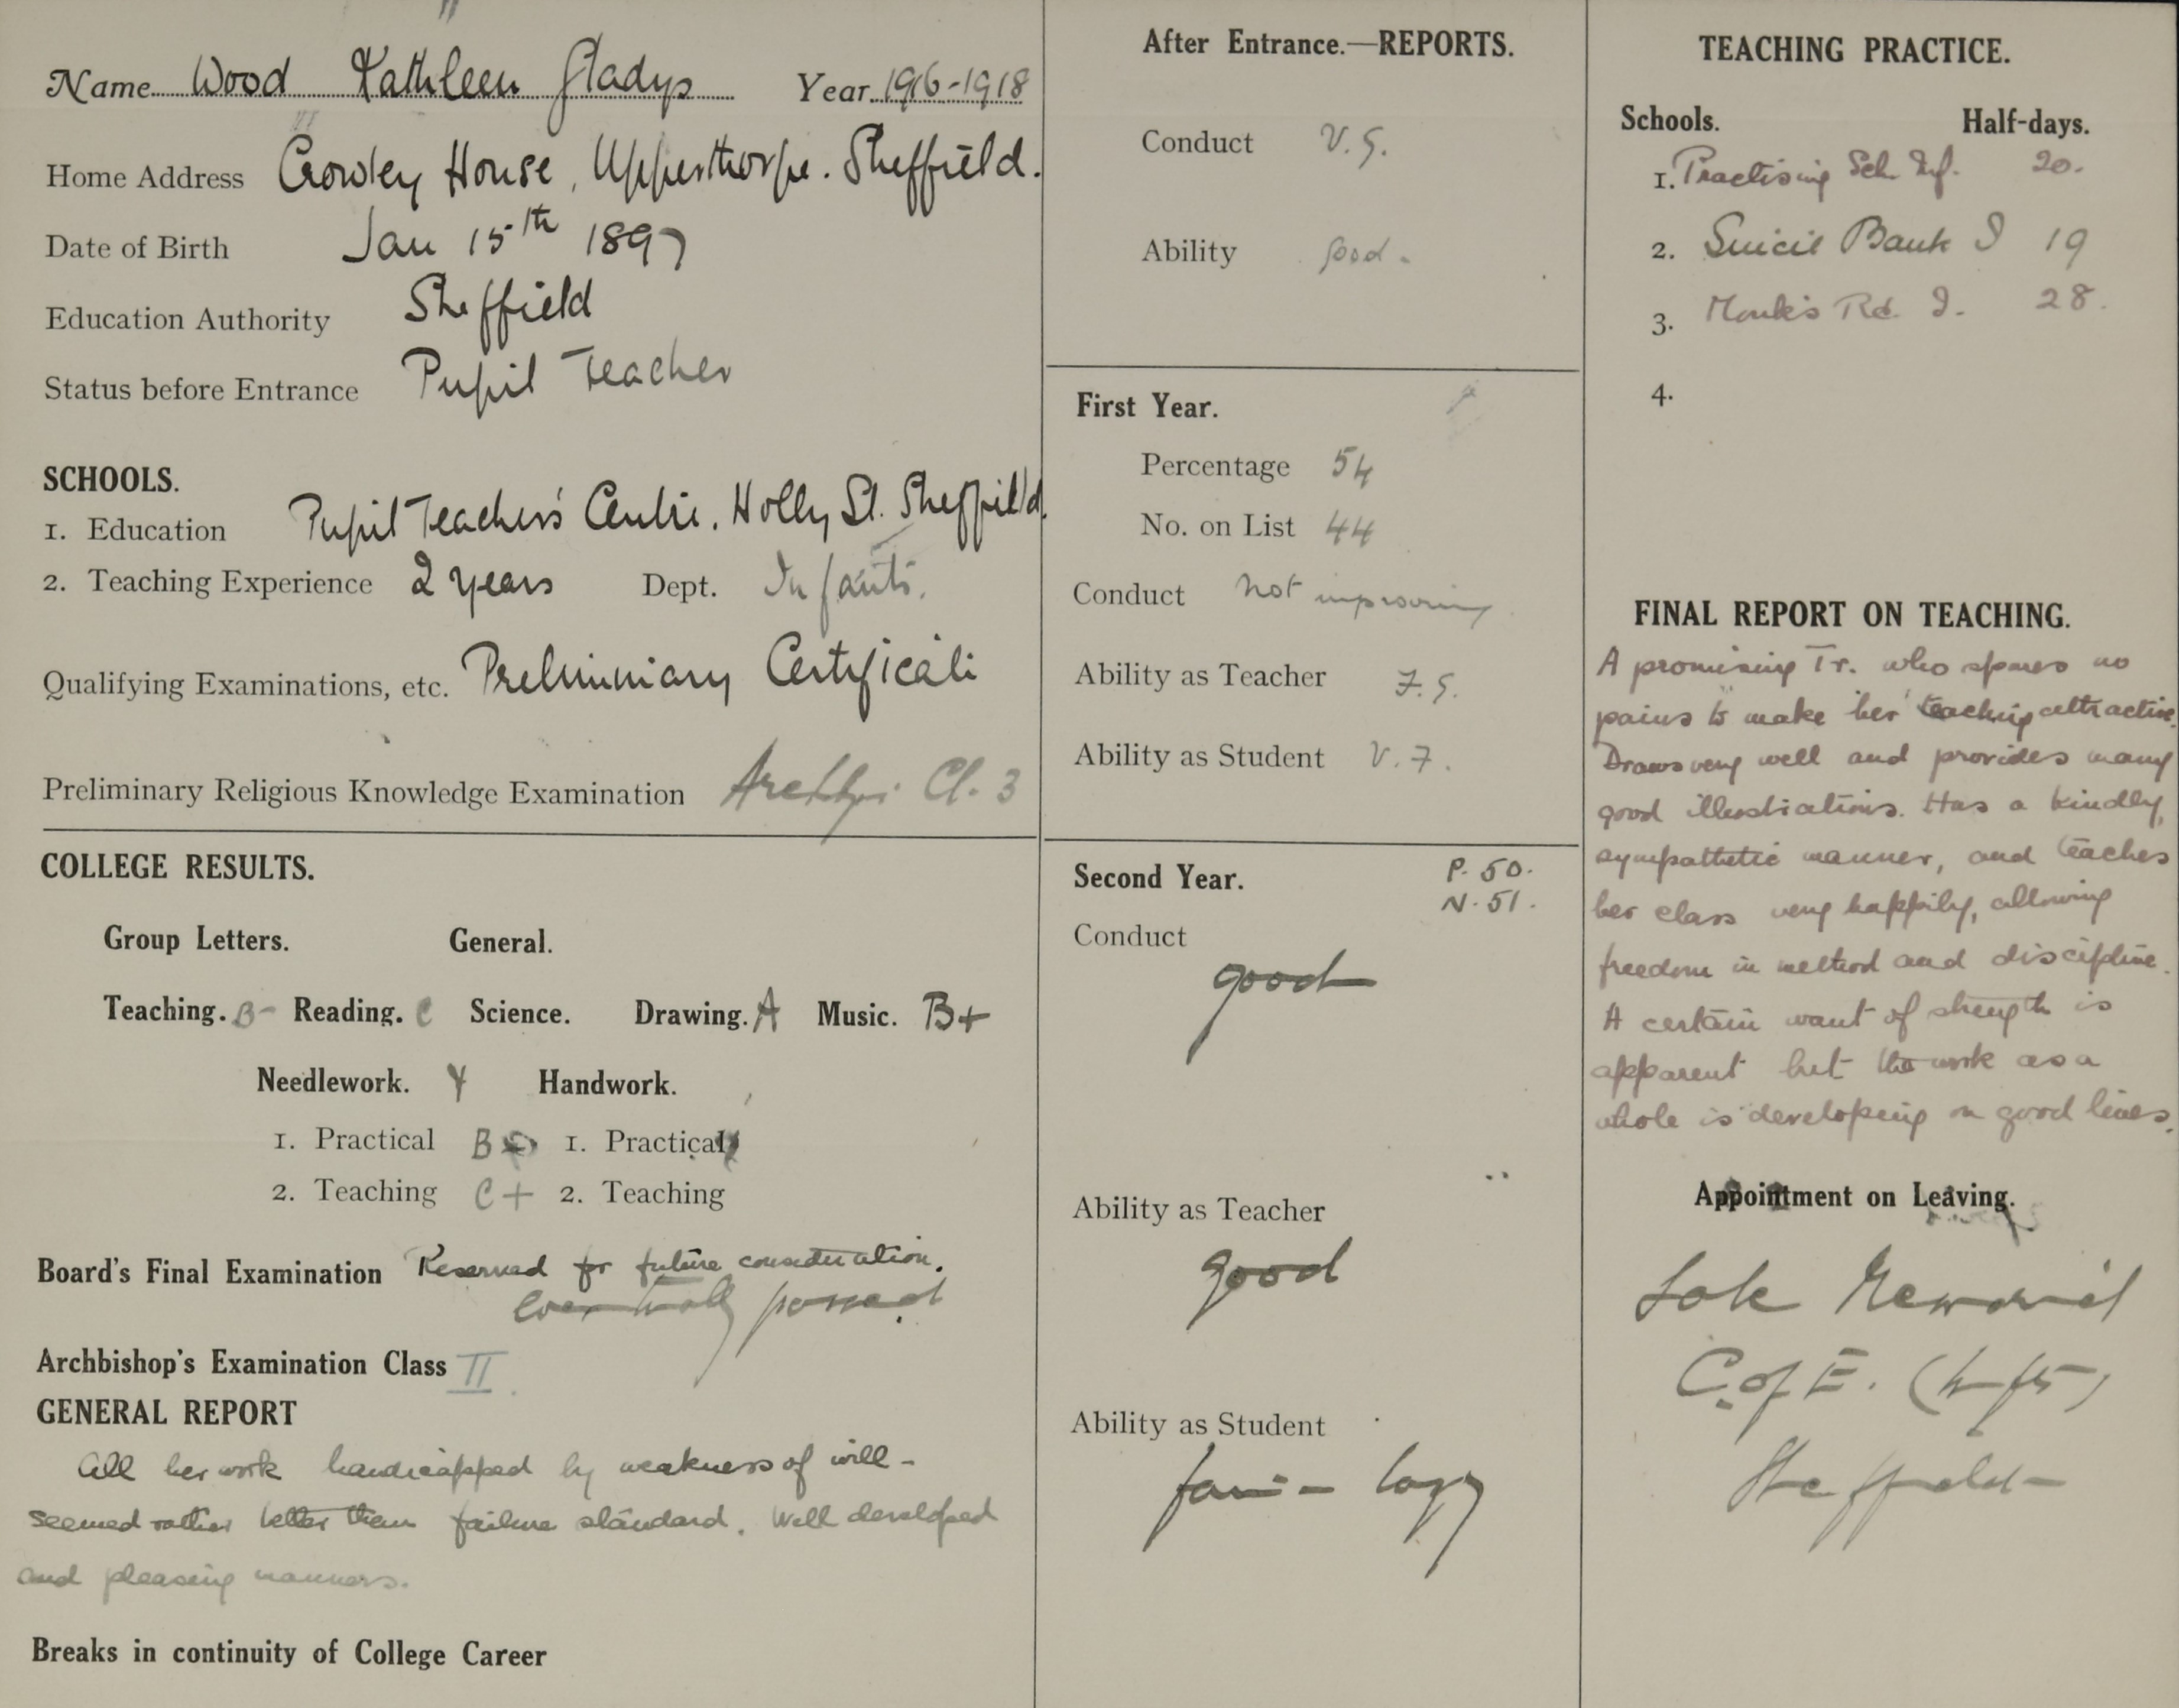 Name Wood Kathleen Gladys Year 1916-1918
Home Address Crowley House, Upperthorpe. Sheffield.
Date of Birth Jan 15th 1897
Education Authority Sheffield
Status before Entrance Pupil Teacher
SCHOOLS.
1. Education Pupil Teachers' Centre. Holly St. Sheffield.
2. Teaching Experience 2 years Dept. Infants.
Qualifying Examinations, etc. Preliminary Certificate
Preliminary Religious Knowledge Examination Archbp: Cl. 3
COLLEGE RESULTS.
Group Letters. General.
Teaching. B- Reading. C Science. Drawing. A Music. B+
Needlework. Handwork.
1. Practical B 1. Practical
2. Teaching C+ 2. Teaching
Board's Final Examination Reserved for future consideration.
eventually passed
Archbishop's Examination Class II.
GENERAL REPORT
All her work handicapped by weakness of will -
seemed rather better than failure standard. Well developed
and pleasing manners.
Breaks in continuity of College Career
After Entrance.—REPORTS.
Conduct V.G.
Ability Good.
First Year.
Percentage 54
No. on List 44
Conduct not improving
Ability as Teacher F.G.
Ability as Student V.F.
Second Year. P. 50.
N. 51.
Conduct
good
Ability as Teacher
good
Ability as Student
fair - lazy
TEACHING PRACTICE.
Schools. Half-days.
1. Practising Sch. Inf. 20.
2. Bank I 19
3. Monks Rd. I. 28.
4.
FINAL REPORT ON TEACHING.
A promising Tr. who spares no
pains to make her teaching attractive.
Draws very well and provides many
good illustrations. Has a kindly,
sympathetic manner, and teaches
her class very happily, allowing
freedom in method and discipline.
A certain want of strength is
apparent but the work as a
whole is developing on good lines.
Appointment on Leaving.
Memorial
C. of E. (Infts)
Sheffield